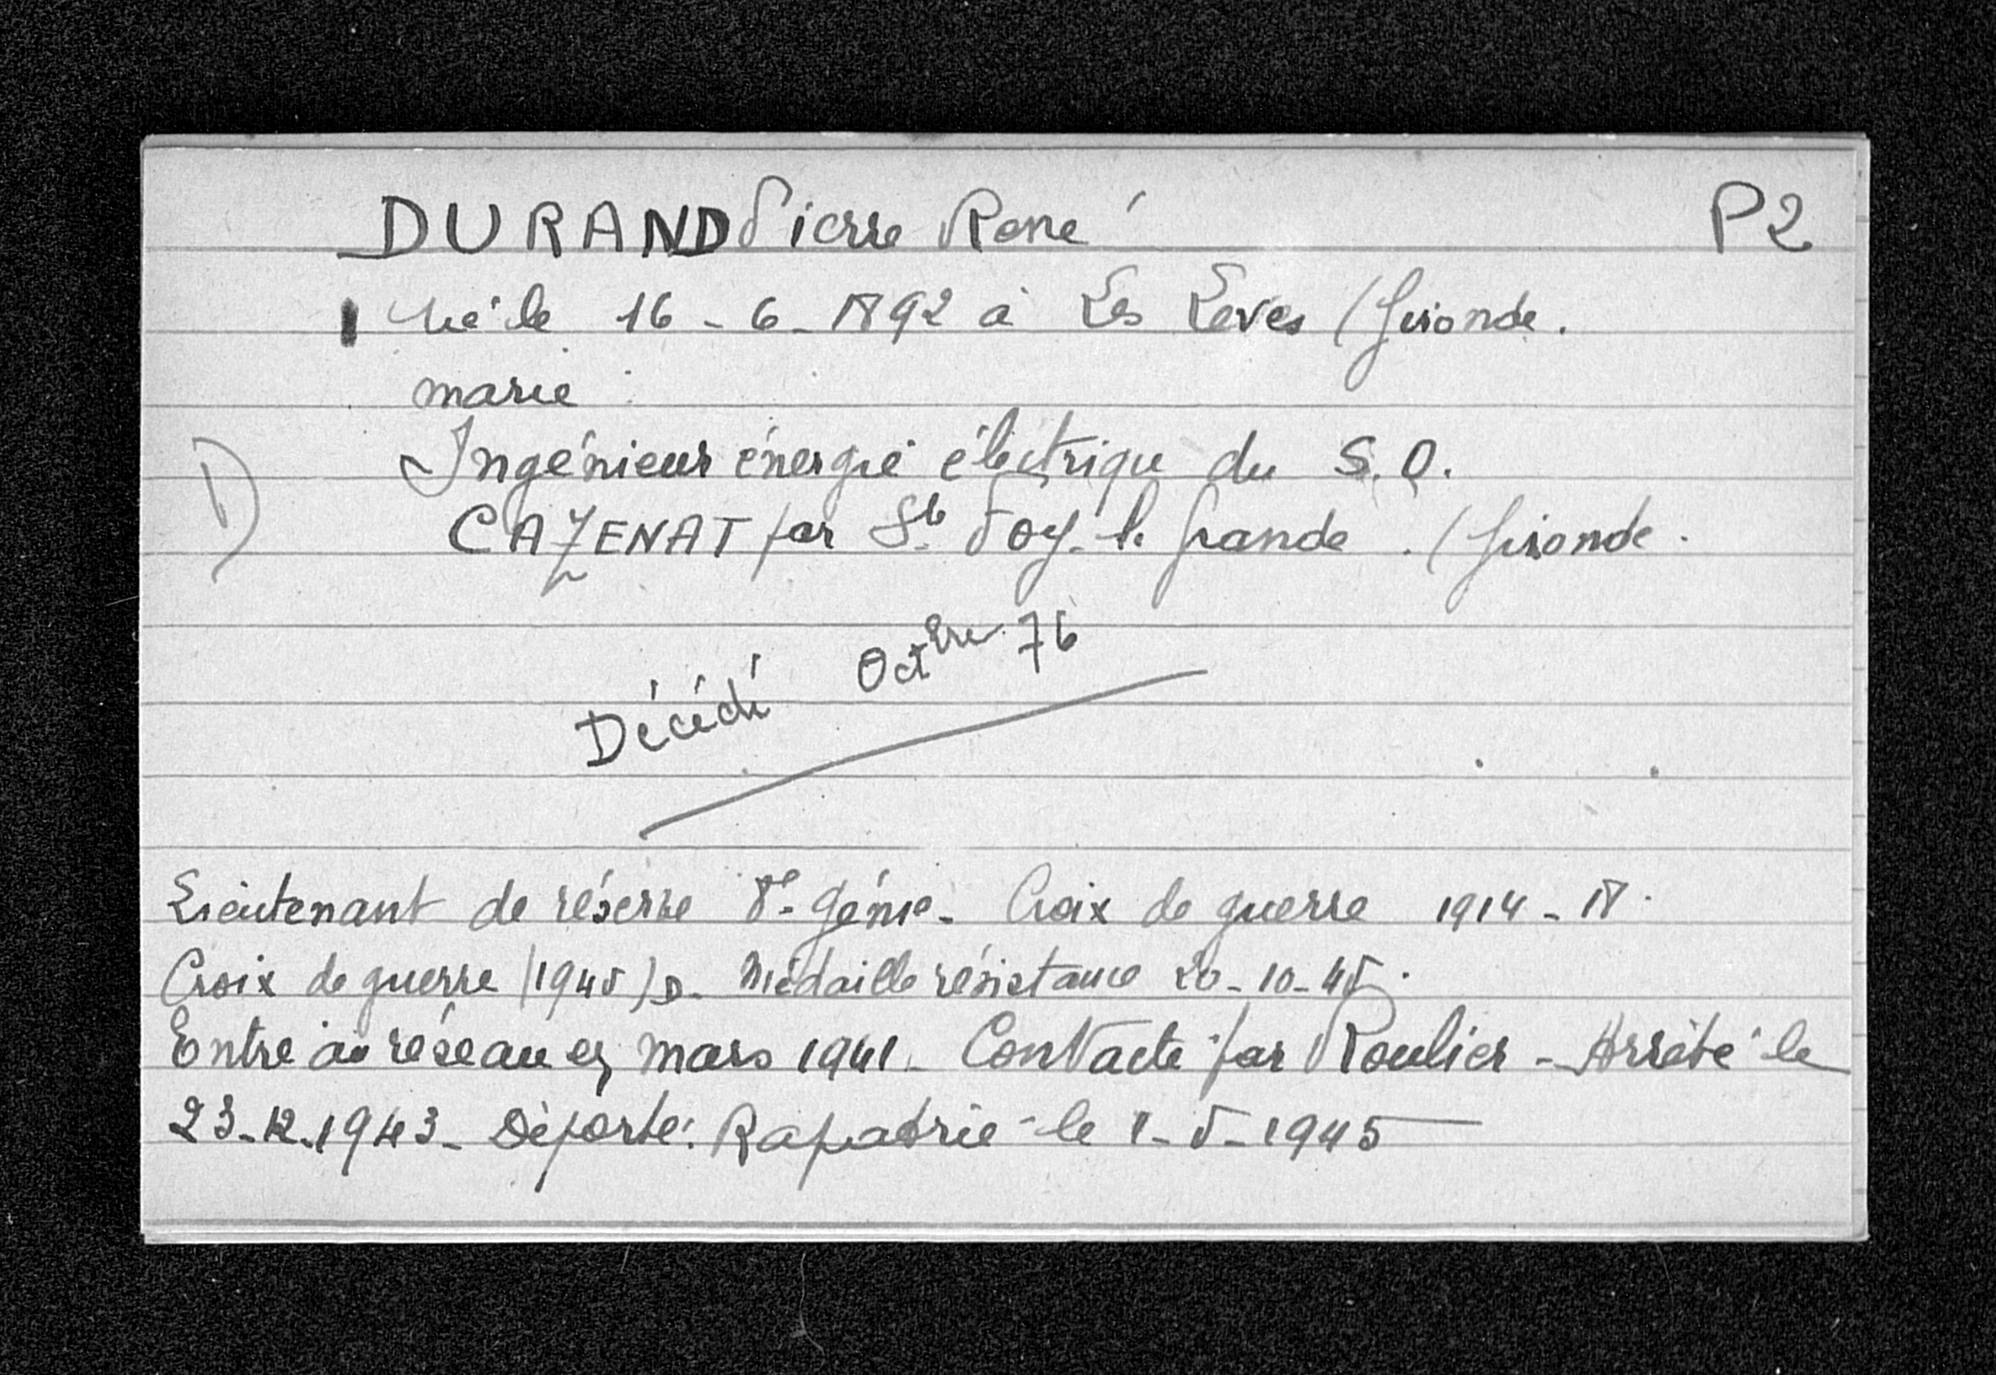 DURAND Pierre René P2
Né le 16 - 6 - 1892 à Les Leves (Gironde.
marié
Ingénieur énergie électrique du S.O.
D
CAZENAT par Ste Foy. la Grande. (Gironde.
Décédé Octbre 76
Lieutenant de réserve 8e Génie - Croix de guerre 1914 - 18.
Croix de guerre (1945) D. Médaille résistance 20 - 10 - 45.
Entré au réseau en mars 1941. Contacté par Roulier - Arrêté le
23-12-1943 - Déporté. Rapatrié le 1 - 5 - 1945